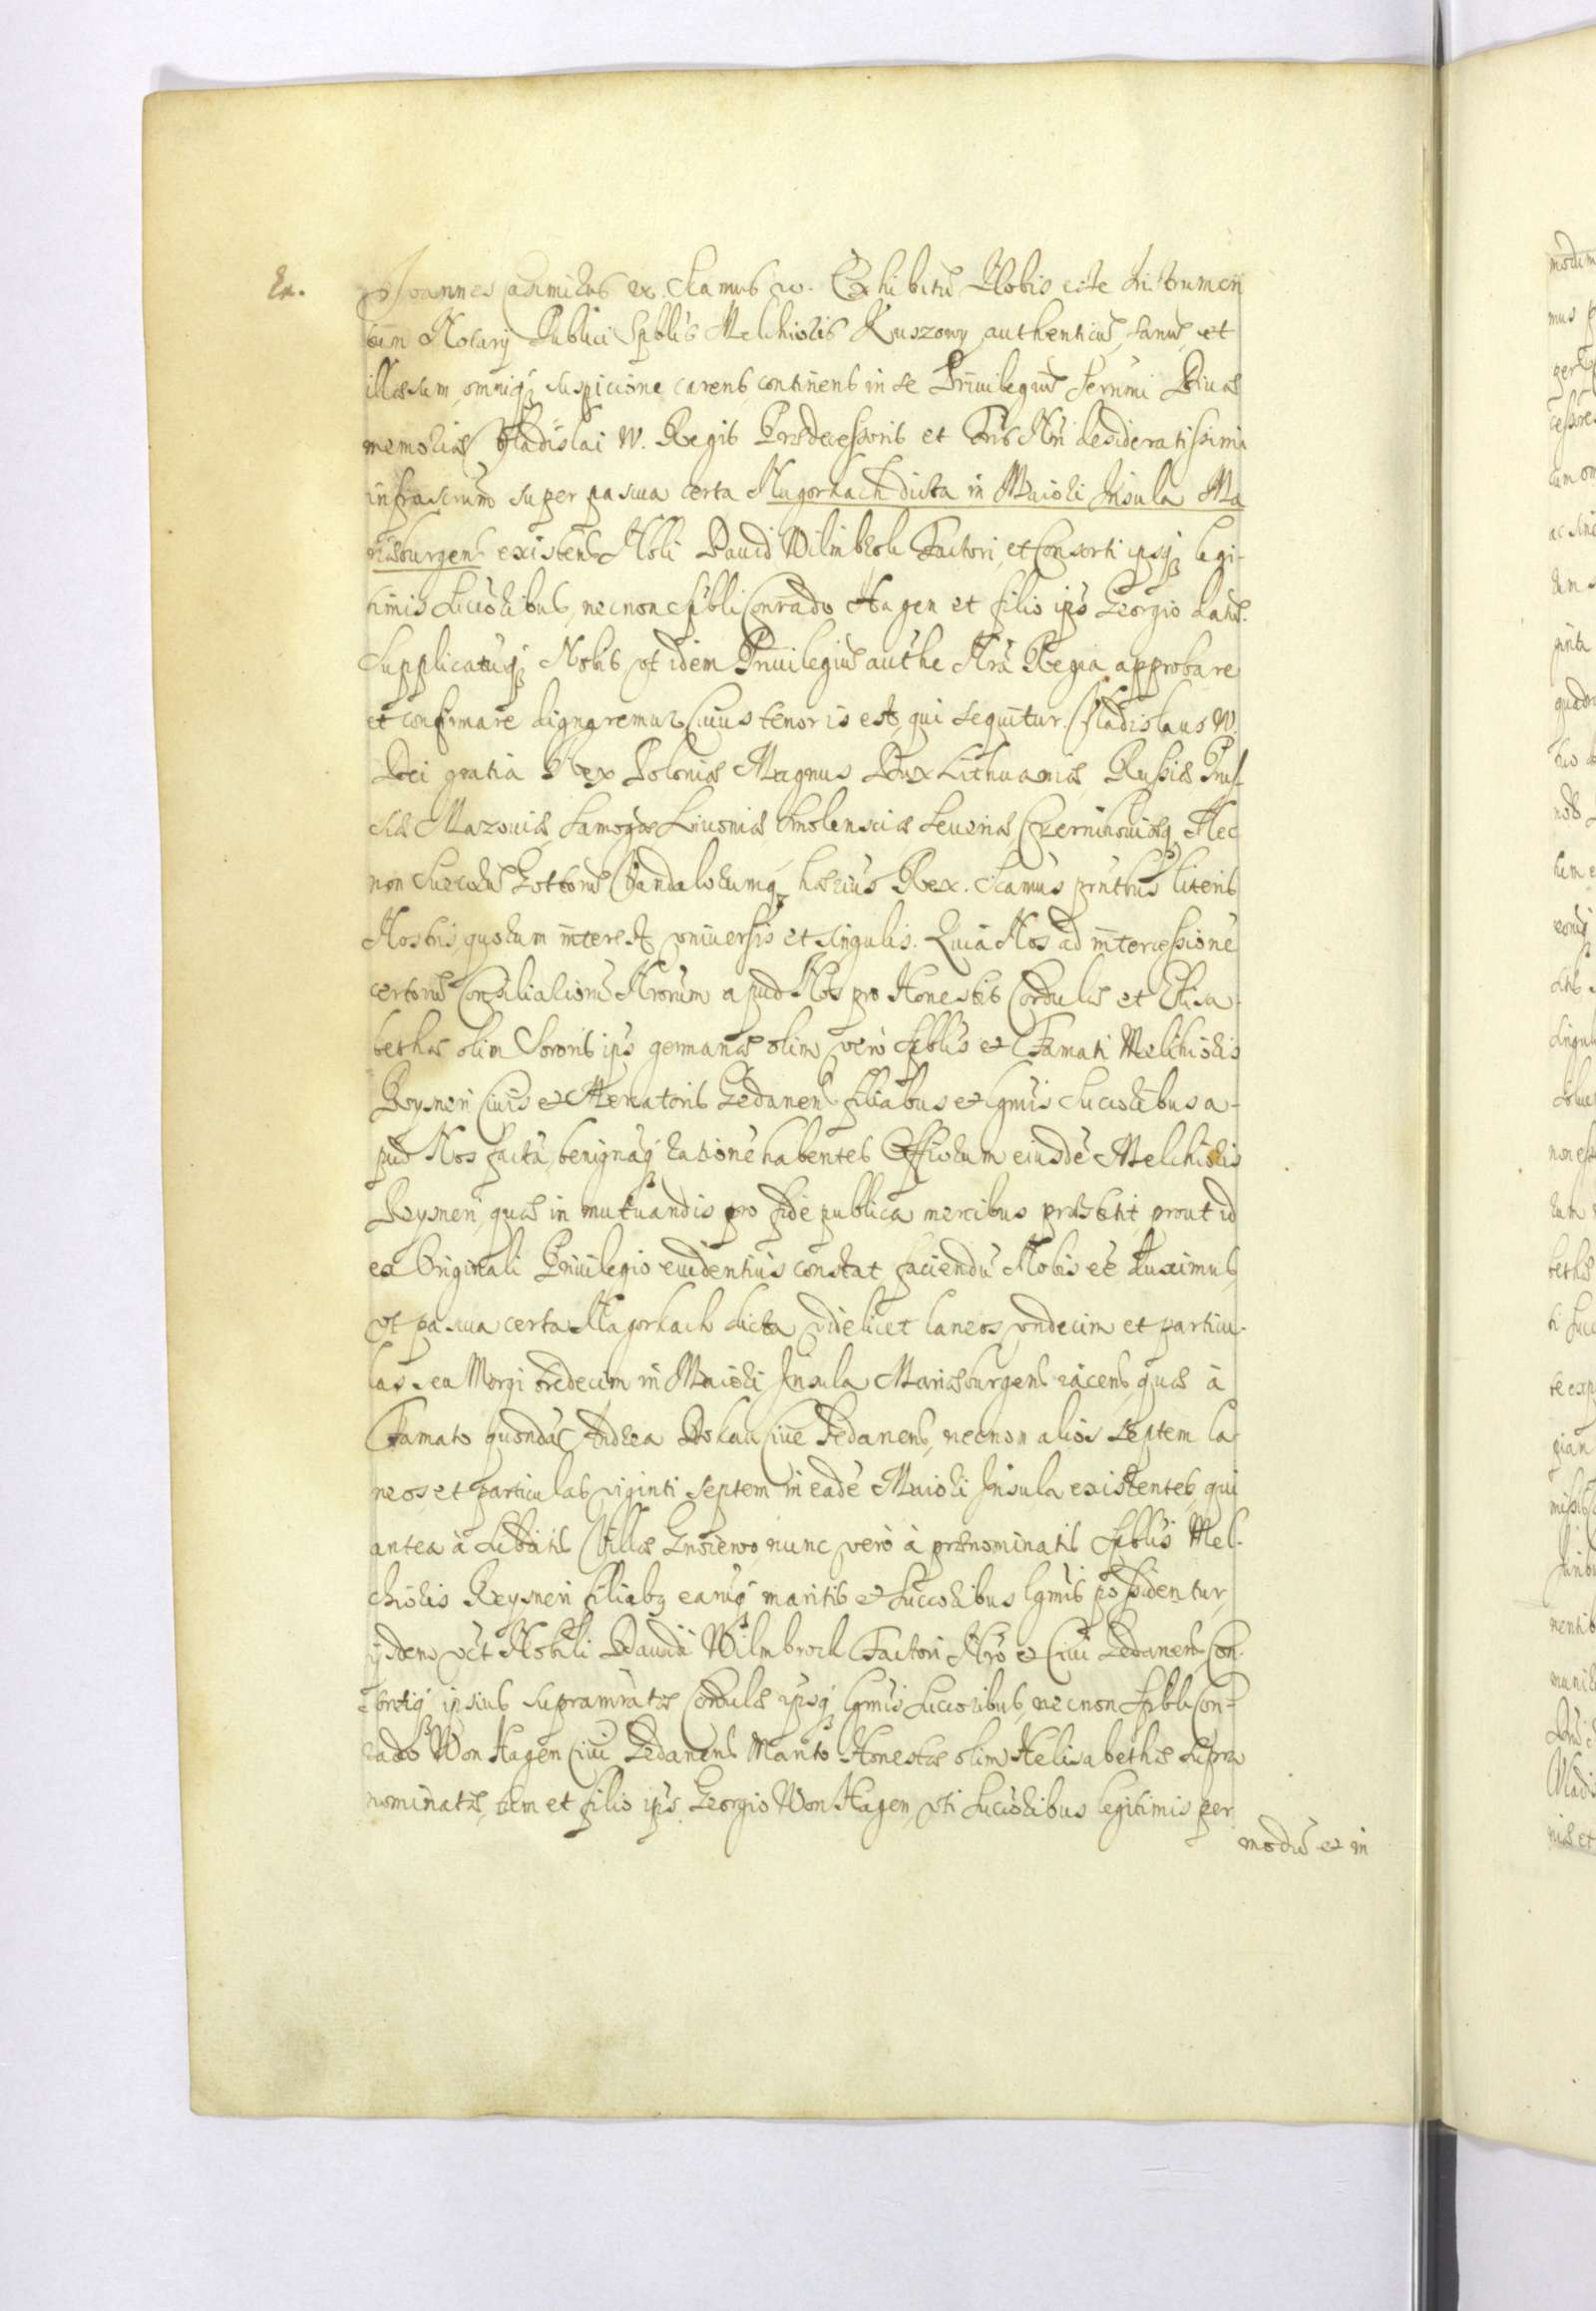 Ex.
Joannes Casimirus ex. Scamus w. Exhibitū Nobis esse Instrumen
tum Notarij Publici Spblis Melchioris Kruszowy authenticū, sanū, et
illæsum, omniq; suspicione carens, continens in se Priuilegiū Sermi Diuæ
memoriæ Vladislai IV. Regis Prædecessoris et Fris Nri desideratissimi
infrascrium super pascua certa Nugorkach dicta in Maiori Insula Ma
riæburgens existens Nobli Dauid Wilmbrok Factori, et Consorti ipsq; legi-
timis Succoribus, necnon Spbli Conrado Hagen et filio ips Georgio datū.
Supplicatuq; Nobis, vt idem Priuilegiū authe Nra Regia approbare
et confirmare dignaremur, Cuius tenor is est, qui sequitur. Vladislaus IV.
Dei gratia Rex Poloniæ Magnus Dux Lithuaniæ, Russiæ Prus-
siæ Mazouiæ, Samogæ Liuoniæ Smolensciæ Seueriæ, Czernihouiæq, Nec
non Suecorū Gottorū Vandalorumq; hærius Rex. Scamus prntbus literis
Nostris, quorum interest, vniuersis et singulis. Quia Nos ad intercessione
certorū Consiliariorū Nrorum apud Nos pro Honestis Cordulæ et Elisa-
bethæ olim Sororis ips germanæ olim verò Spblis et Famati Melchioris
Reysneri Ciuis et Mercatoris Gedanens filiabus et lgmis Succoribus a-
pud Nos facta, benignaq; rationē habentes Officiorum eiusdē Melchioris
Reysneri, quæ in mutuandis pro fide publica mercibus præstitit, prout id
ex Originali Priuilegio euidentius constat, faciendū Nobis eē duximus,
vt pascua certa Nagorkach dicta, videlicet laneos vndecim et particu-
las seu Morgi tredecim in Maiori Insula Mariæburgens iacens, quæ à
Famato quondā Andrea Ciue Gedanens, necnon alios septem la-
neos et particulas viginti septem in eadē Maiori Insula existentes, qui
antea à Villæ nunc verò à prænominatis Spblis Mel-
chioris Reysneri filiabq earuq; maritis et Succoribus lgmis possidentur,
ijdem vt Nobili Dauidi Wilmbrock Factori Nro et Ciui Gedanens Con-
sortiq; ipsius supramratæ Cordulæ ipsq; lgmis Succoribus, necnon Spbli Con-
rado Won Hagen Ciui Gedanens Marito Honestæ olim Helisabethæ supra
nominatæ, tem et filio ips Georgio Won Hagen, vti Succoribus legitimis per
modū et in